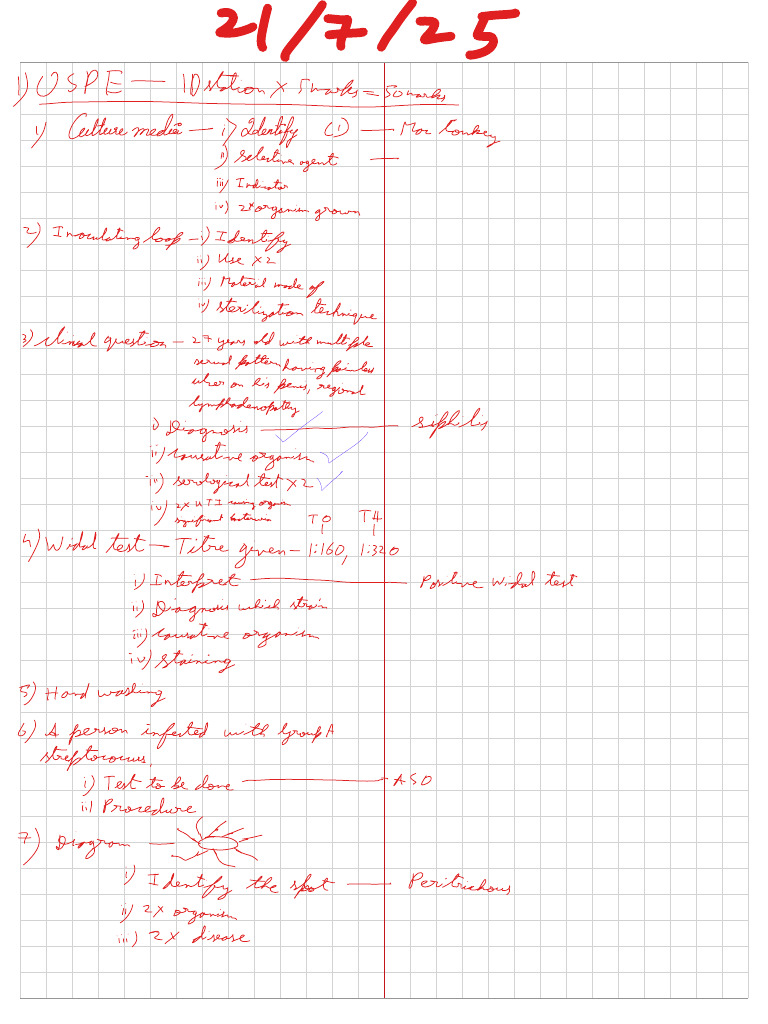 21/7/25
1) OSPE — 10 station X 5 marks = 50 marks
1) Culture media — i) Identify (1) — Mac Conkey
ii) Selective agent —
iii) Indicator
iv) 2x organism grown
2) Inoculating loop — i) Identify
ii) Use x2
iii) Material made of
iv) Sterilization technique
3) Clinical question — 27 years old with multiple
sexual partner having painless
ulcer on his penis, regional
lymphadenopathy
i) Diagnosis — siphilis
ii) Causative organism
iii) serological test x2
iv) 2x UTI causing organism
significant bacteriuria TO TH
4) Widal test — Titre given — 1:160, 1:320
i) Interpret — Positive Widal test
ii) Diagnosis which strain
iii) Causative organism
iv) Staining
5) Hand washing
6) A person infected with Group A
streptococcus,
i) Test to be done — ASO
ii) Procedure
7) Diagram —
i) Identify the spot — Peritrichous
ii) 2x organism
iii) 2x disease